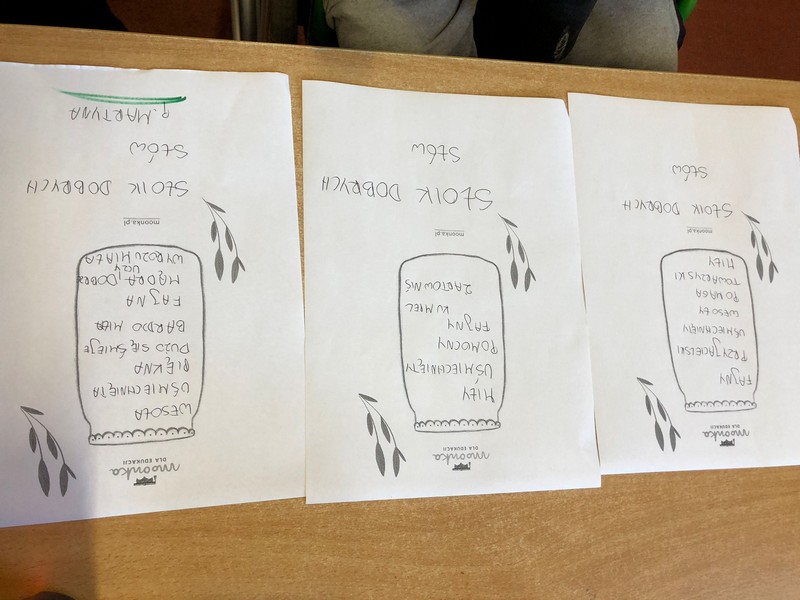 moonka
DLA EDUKACJI
FAJNY
PRZYJACIELSKI
UŚMIECHNIĘTY
WESOŁY
POMAGA
TOWARZYSKI
MIŁY
moonka.pl
SŁOIK DOBRYCH
SŁÓW
moonka
DLA EDUKACJI
MIŁY
UŚMIECHNIĘTY
POMOCNY
FAJNY
KUMPEL
ŻARTOWNIŚ
moonka.pl
SŁOIK DOBRYCH
SŁÓW
moonka
DLA EDUKACJI
WESOŁA
UŚMIECHNIĘTA
PIĘKNA
DUŻO SIĘ ŚMIEJE
BARDZO MIŁA
FAJNA
MĄDRA, DOBRZE
UCZY
WYROZUMIAŁA
moonka.pl
SŁOIK DOBRYCH
SŁÓW
P. MARTYNA